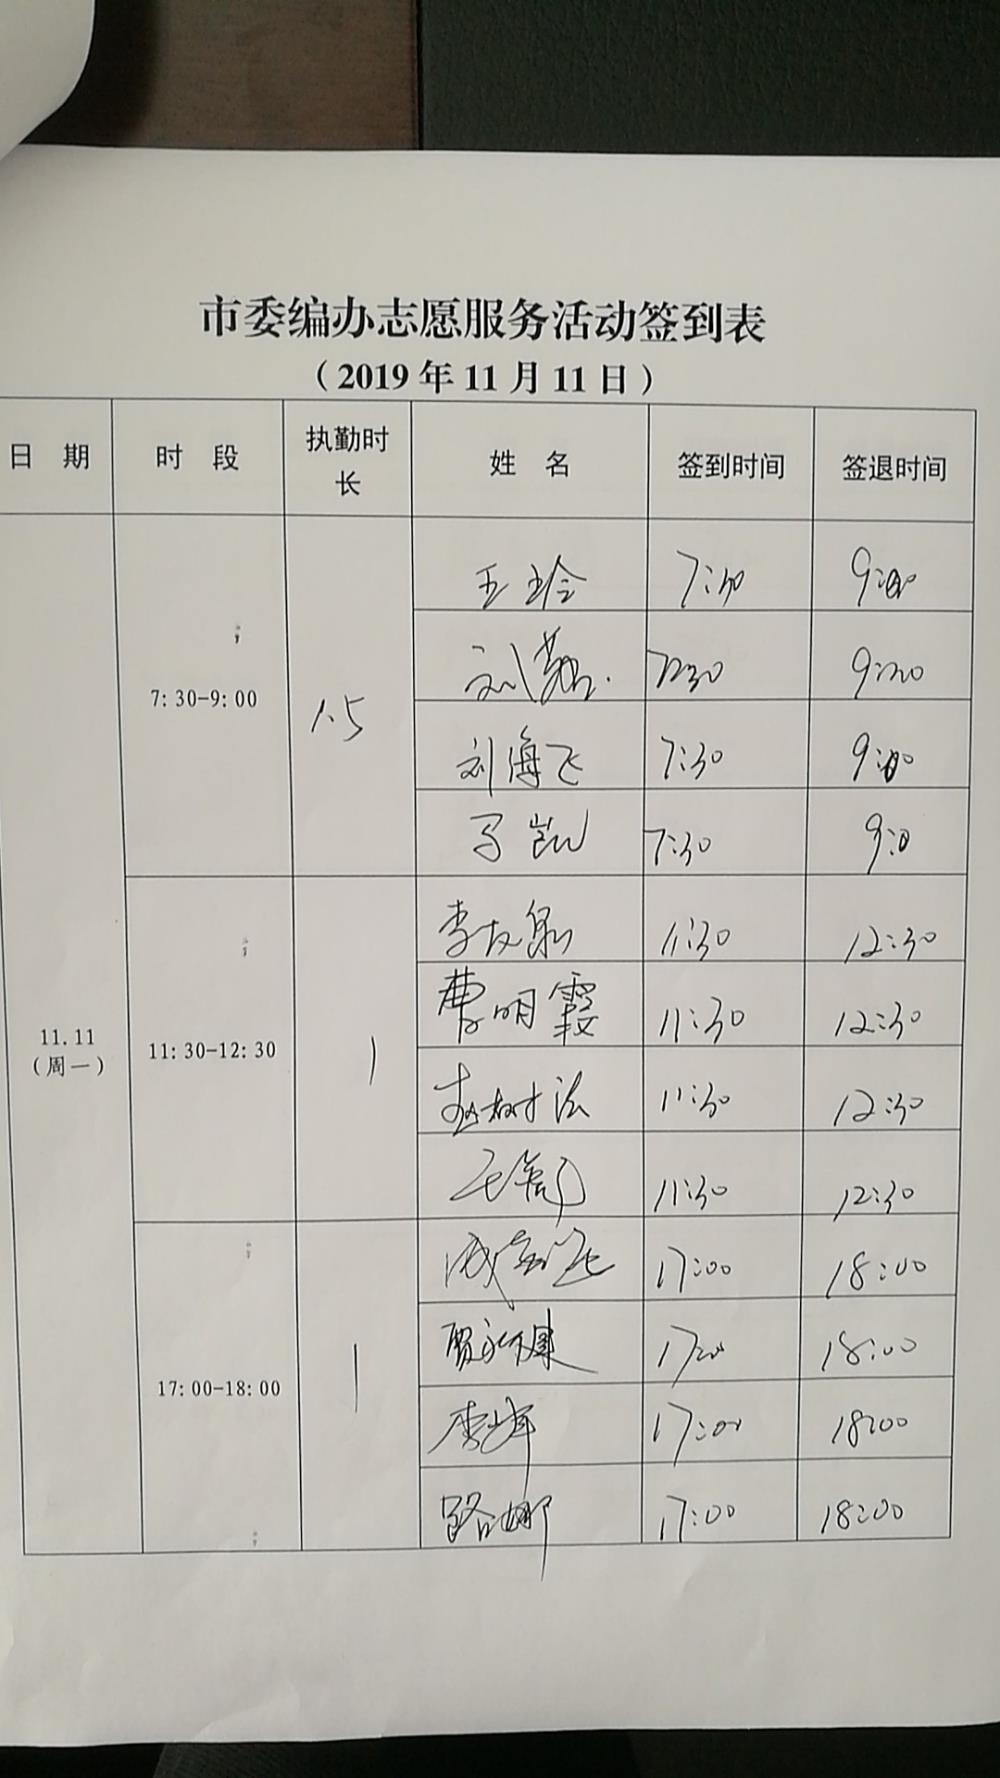 市委编办志愿服务活动签到表
（2019 年 11 月 11 日）
日 期 时 段 执勤时长 姓 名 签到时间 签退时间
11.11
（周一）
7:30-9:00 1.5
王玲 7:30 9:00
刘 7:30 9:00
刘海飞 7:30 9:00
马凯 7:30 9:0
11:30-12:30 1
李友泉 11:30 12:30
曹明霞 11:30 12:30
赵树法 11:30 12:30
11:30 12:30
17:00-18:00 1
17:00 18:00
贾永健 17:00 18:00
李峰 17:00 18:00
路娜 17:00 18:00